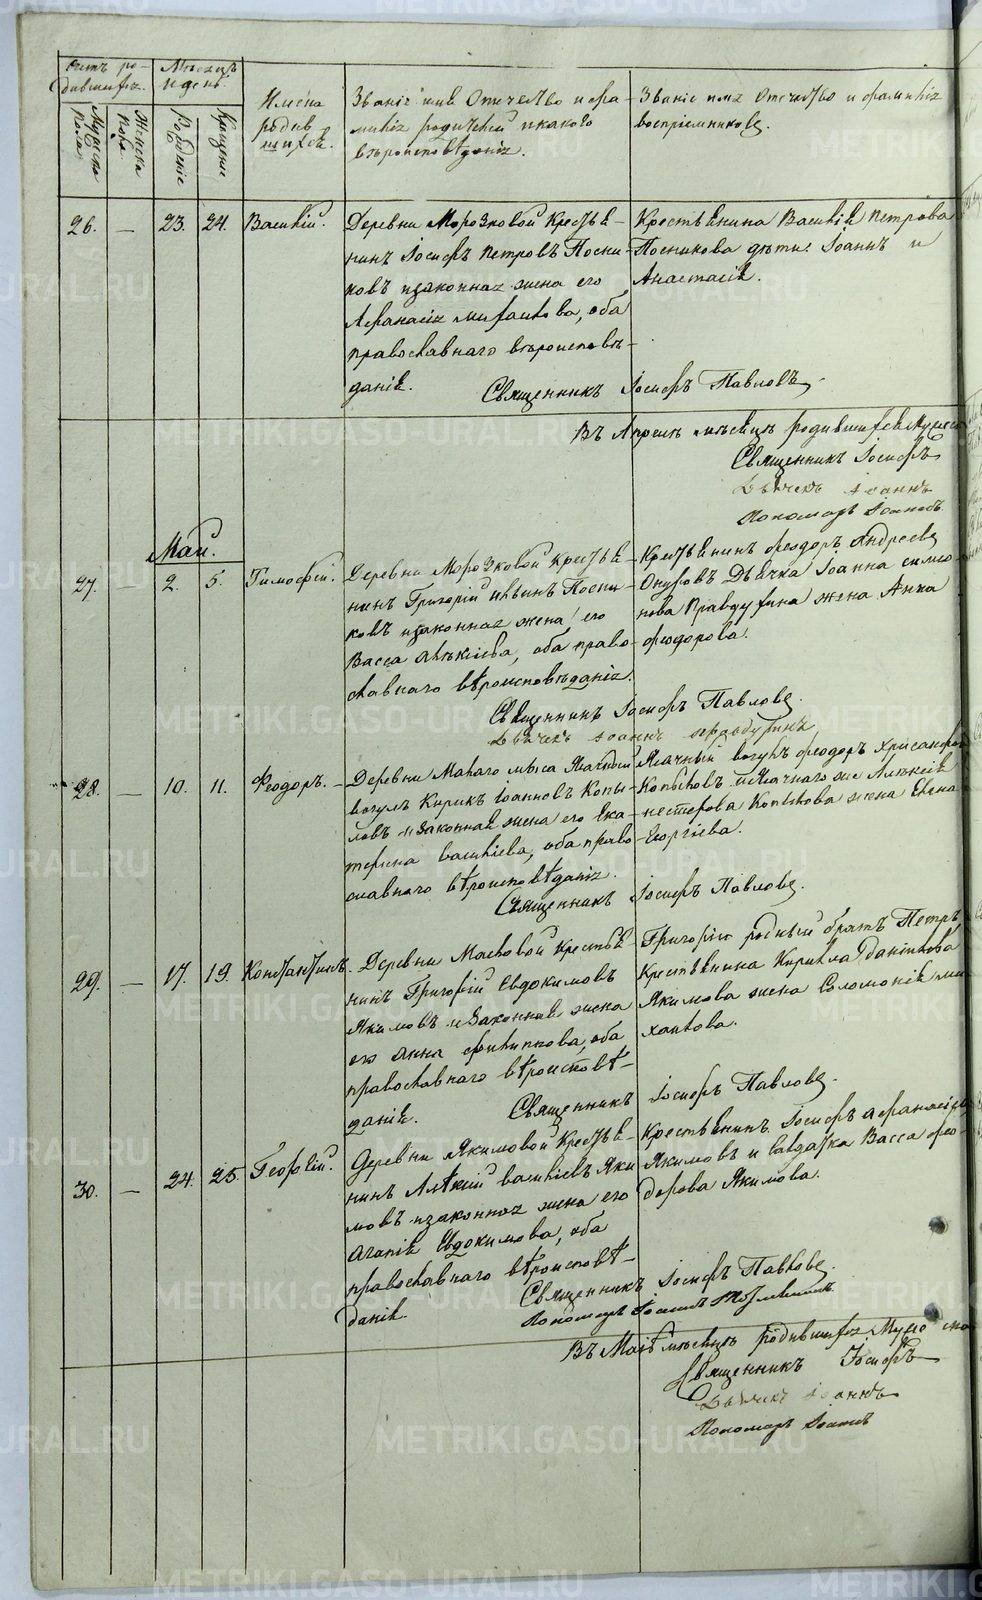 Счетъ ро-
дившихся.
Мѣсяцъ
и день.
Мужеска
пола
Женска
пола.
Рожденіе
Крещеніе
Имена
родив
шихся.
Званіе имя Отечество и фа-
милія родителей и какого
вѣроисповѣданія.
Званіе имя Отечество и фамилія
воспріемниковъ.
26. — 23. 24. Василій.
Деревни Морозковой Кресть-
нинъ Іосифъ Петровъ Посни-
ковъ и законная жена его
Афанасія Михаилова, оба
православнаго вѣроисповѣ-
данія.
Крестьянина Василія Петрова
Посникова дѣти: Іоаннъ и
Анастасія.
Священникъ Іосифъ Павловъ.
Въ Апрелѣ мѣсяцѣ родившихся Мужеск
Священникъ Іосифъ
Дьячекъ Іоаннъ
Пономарь Іоаннъ
Май.
27. — 2. 5. Тимофей.
Деревни Морозковой Крестья-
нинъ Григорій Ильинъ Посни-
ковъ и законная жена его
Васса Алексіева, оба право-
славнаго вѣроисповѣданія.
Крестьянинъ Феодоръ Андреевъ
Дьячка Іоанна Симео-
нова Правдухина жена Анна
Феодорова.
Священникъ Іосифъ Павловъ.
Дьячекъ Іоаннъ Правдухинъ
28. — 10. 11. Феодоръ.
Деревни Малаго мыса Ясачный
вогулъ Кирикъ Іоанновъ Копы-
ловъ и законная жена его Ека-
терина Васильева, оба право-
славнаго вѣроисповѣданія.
Ясачный вогулъ Феодоръ Хрисанфовъ
Копыловъ и Ясачнаго же Алексія
Нестерова Копылова жена Елена
Георгіева.
Священникъ Іосифъ Павловъ.
29. — 17. 19. Константинъ.
Деревни Масловой Крестья-
нинъ Григорій Евдокимовъ
Якимовъ и законная жена
его Анна Филипова, оба
православнаго вѣроисповѣ-
данія.
Григорію родный братъ Петръ
Крестьянина Кирилла Данилова
Якимова жена Соломонія Ми
хаилова.
Священникъ Іосифъ Павловъ.
30. — 24. 25. Георгій.
Деревни Якимовой Крестья-
нинъ Алексій Василіевъ Яки
мовъ и законная жена его
Агапія Евдокимова, оба
православнаго вѣроисповѣ-
данія.
Крестьянинъ Іосифъ Афанасіевъ
Якимовъ и солдатка Васса Фео-
дорова Якимова.
Священникъ Іосифъ Павловъ.
Пономарь Іоаннъ
Въ Маіѣ мѣсяцѣ родившихся Муже
Священникъ Іосифъ
Дьячекъ Іоаннъ
Пономарь Іоаннъ
METRIKI.GASO-URAL.RU